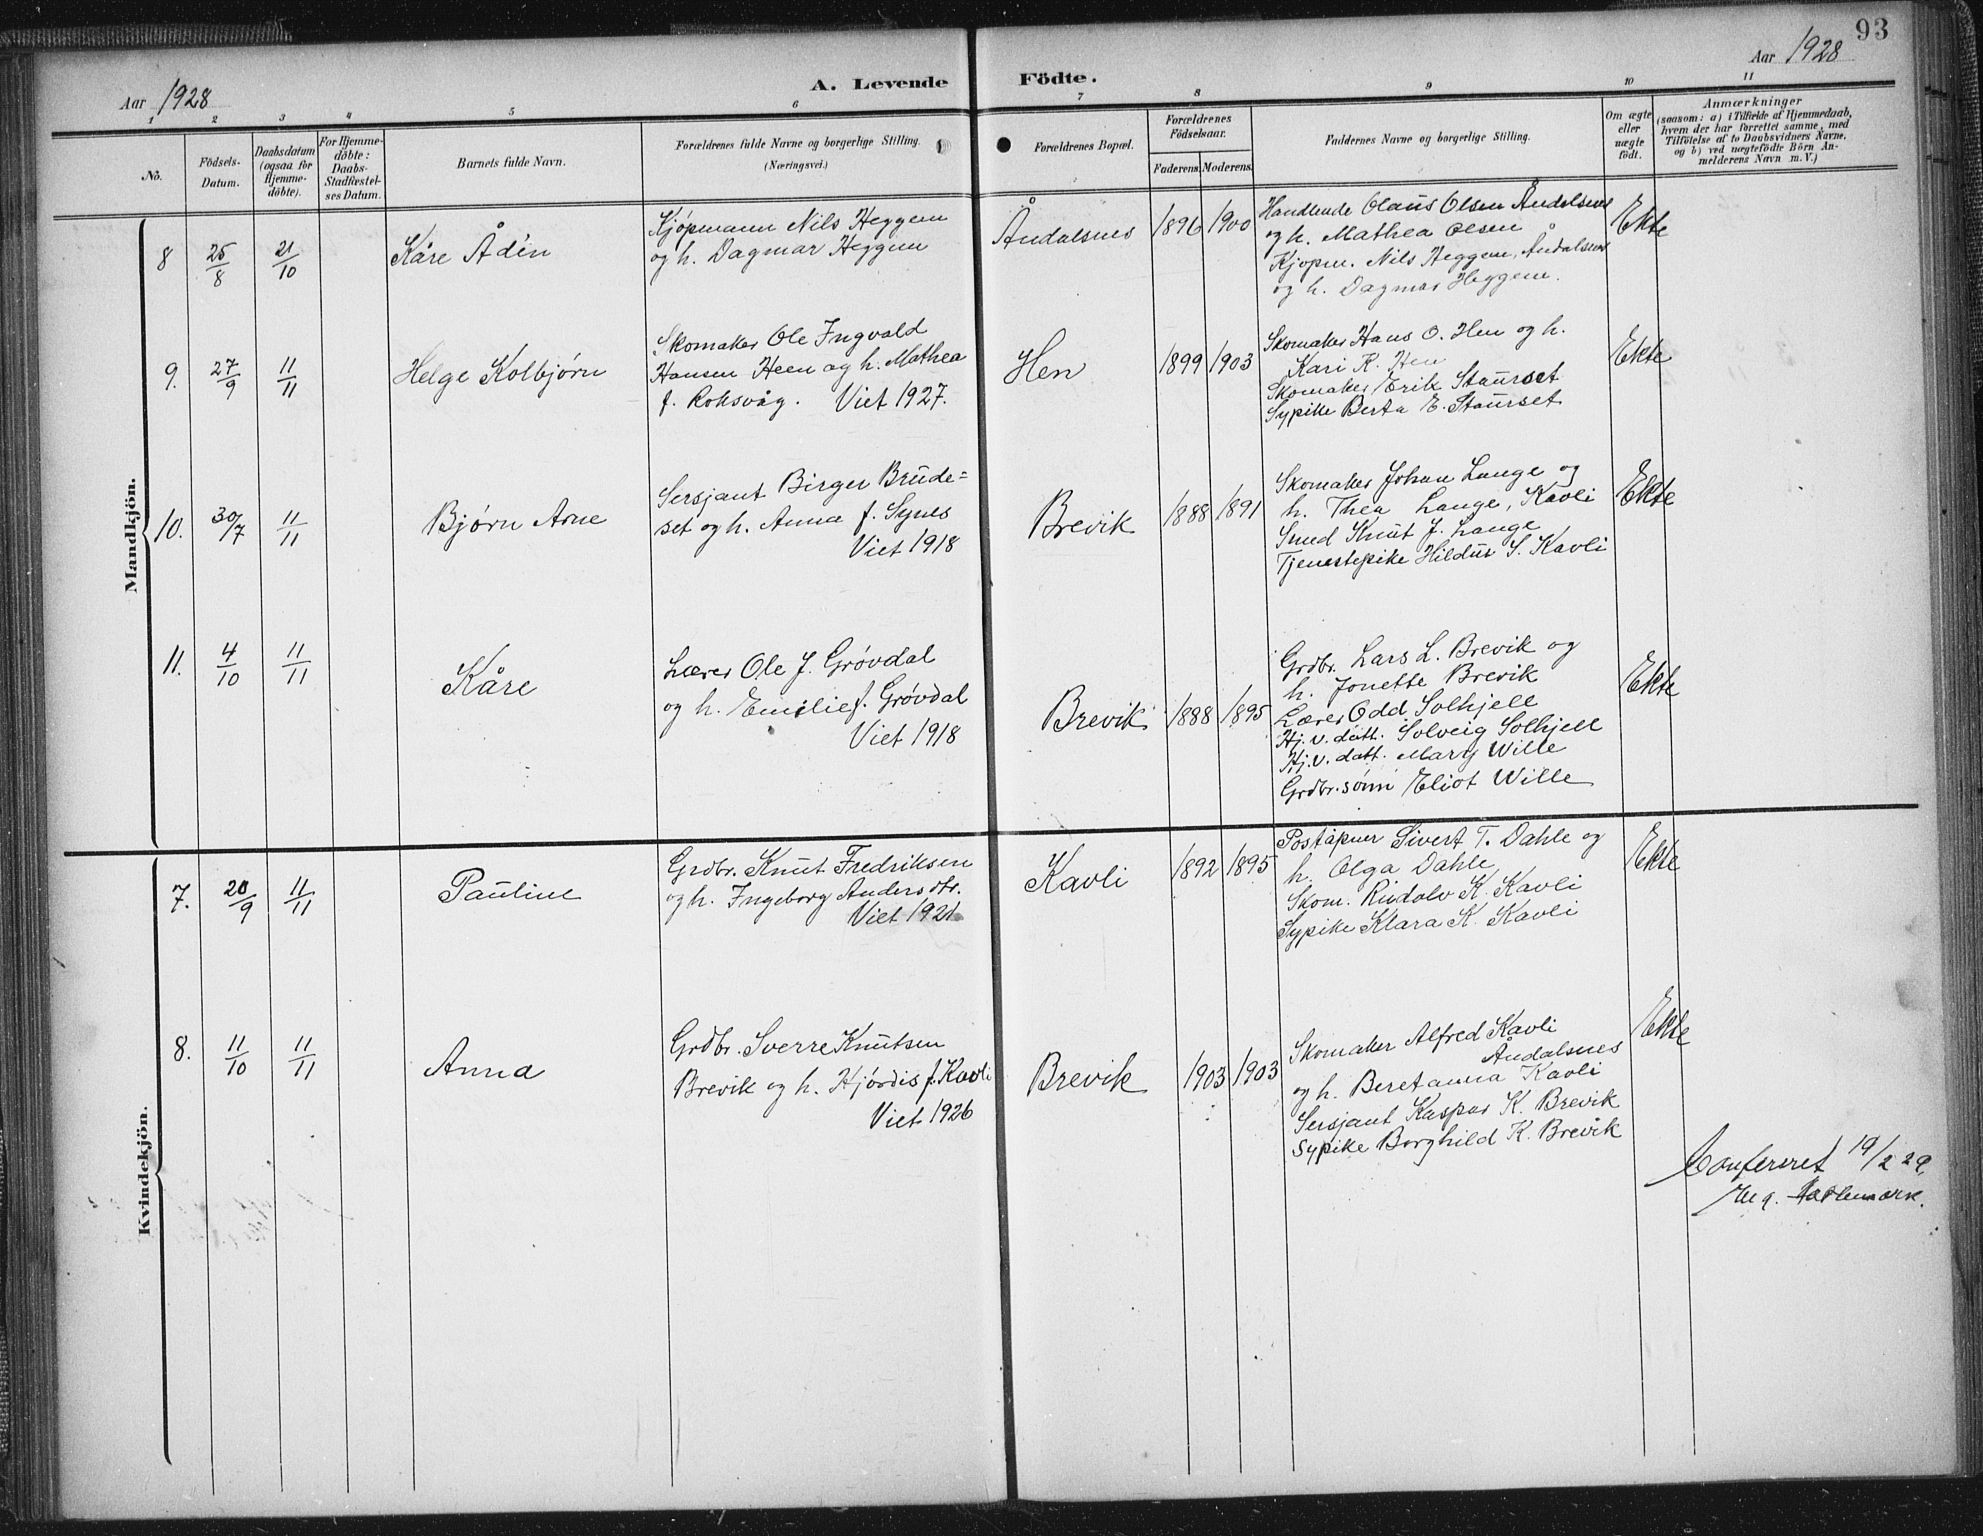 93
Aar 1928
A. Levende Födte.
Aar 1928
1 2 3 4 5 6 7 8 9 10 11
No.
Födsels-
Datum.
Daabsdatum
(ogsaa for
Hjemme-
döbte).
For Hjemme-
döbte:
Daabs-
Stadfæstel-
ses Datum.
Barnets fulde Navn.
Forældrenes fulde Navne og borgerlige Stilling.
(Næringsvei.)
Forældrenes Bopæl.
Forældrenes
Födselsaar.
Faderens. Moderens.
Faddernes Navne og borgerlige Stilling.
Om ægte
eller
uægte
født.
Anmærkninger
(saasom: a) i Tilfælde af Hjemmedaab,
hvem der har forrettet samme, med
Tilföielse af to Daabsvidners Navne,
og b) ved uægtefödte Börn An-
melderens Navn m. V.)
Mandkjön.
8 25/8 21/10 Kåre Ådin
Kjøpmann Nils Heggem
og h. Dagmar Heggem
Åndalsnes 1896 1900
Handlende Olaus Olsen Åndalsnes
og h. Mathea Olsen
Kjøpm. Nils Heggem, Åndalsnes
og h. Dagmar Heggem.
Ekte
9. 27/9 11/11 Helge Kolbjørn
Skomaker Ole Ingvald
Hansen Heen og h. Mathea
f. Roksvåg. Viet 1927.
Hen 1899 1903
Skomaker Hans O. Hen og h.
Kari R. Hen
Skomaker Erik Staurset
Sypike Berta E. Staurset
Ekte
10. 30/7 11/11 Bjørn Arne
Sersjant Birger Brude=
set og h. Anna f. Synes
Viet 1918
Brevik 1888 1891
Skomaker Johan Lange og
h. Thea Lange, Kavli
Smed Knut J. Lange
Tjenestepike Hildur S. Kavli
Ekte
11. 4/10 11/11 Kåre
Lærer Ole J. Grøvdal
og h. Emilie f. Grøvdal
Viet 1918
Brevik 1888 1895
Grdbr. Lars L. Brevik og
h. Jonette Brevik
Lærer Odd Solhjell
Hj.v. datt. Solveig Solhjell
Hj.v. datt. Mary Wille
Grdbr. sønn Eliot Wille
Ekte
Kvindekjön.
7. 20/9 11/11 Pauline
Grdbr. Knut Fredriksen
og h. Ingeborg Andersdtr.
Viet 1921
Kavli 1892 1895
Poståpner Sivert T. Dahle og
h. Olga Dahle
Skom. Rudolv K. Kavli
Sypike Klara K. Kavli
Ekte
8. 11/10 11/11 Anna
Grdbr. Sverre Knutsen
Brevik og h. Hjørdis f. Kavli
Viet 1926
Brevik 1903 1903
Skomaker Alfred Kavli
Åndalsnes
og h. Beretanna Kavli
Sersjant Kaspar K. Brevik
Sypike Borghild K. Brevik
Ekte
Conferert 19/2 29.